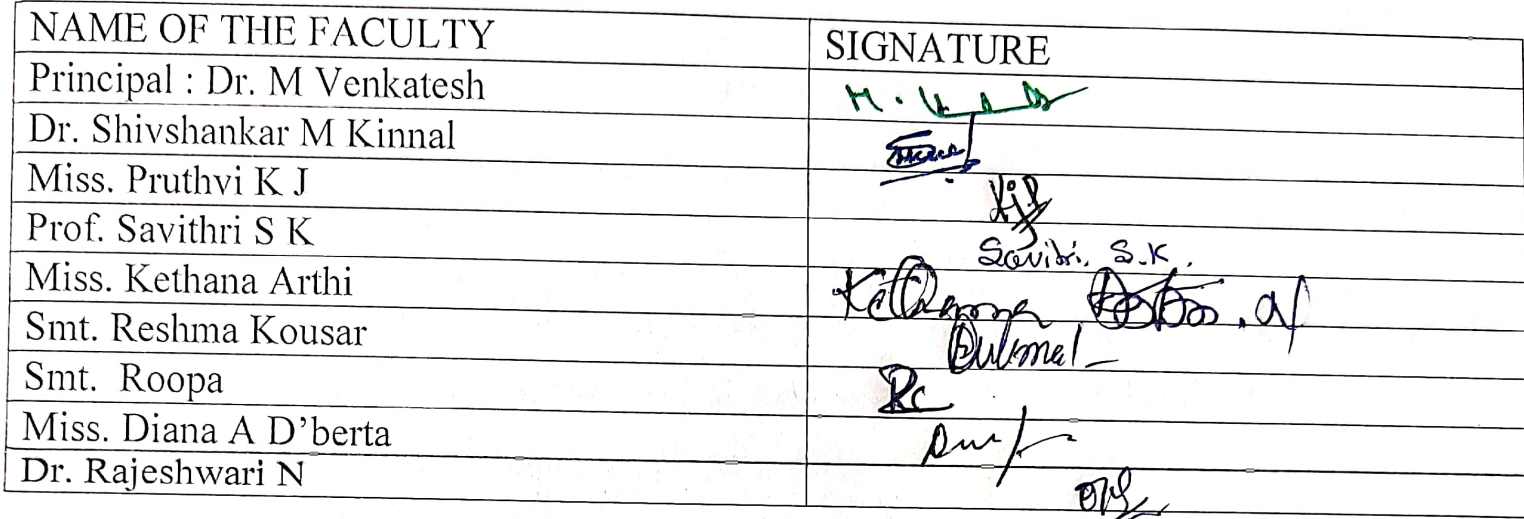 NAME OF THE FACULTY SIGNATURE
Principal : Dr. M Venkatesh
Dr. Shivshankar M Kinnal
Miss. Pruthvi K J
Prof. Savithri S K Savitri. S.K.
Miss. Kethana Arthi
Smt. Reshma Kousar
Smt. Roopa
Miss. Diana A D'berta
Dr. Rajeshwari N